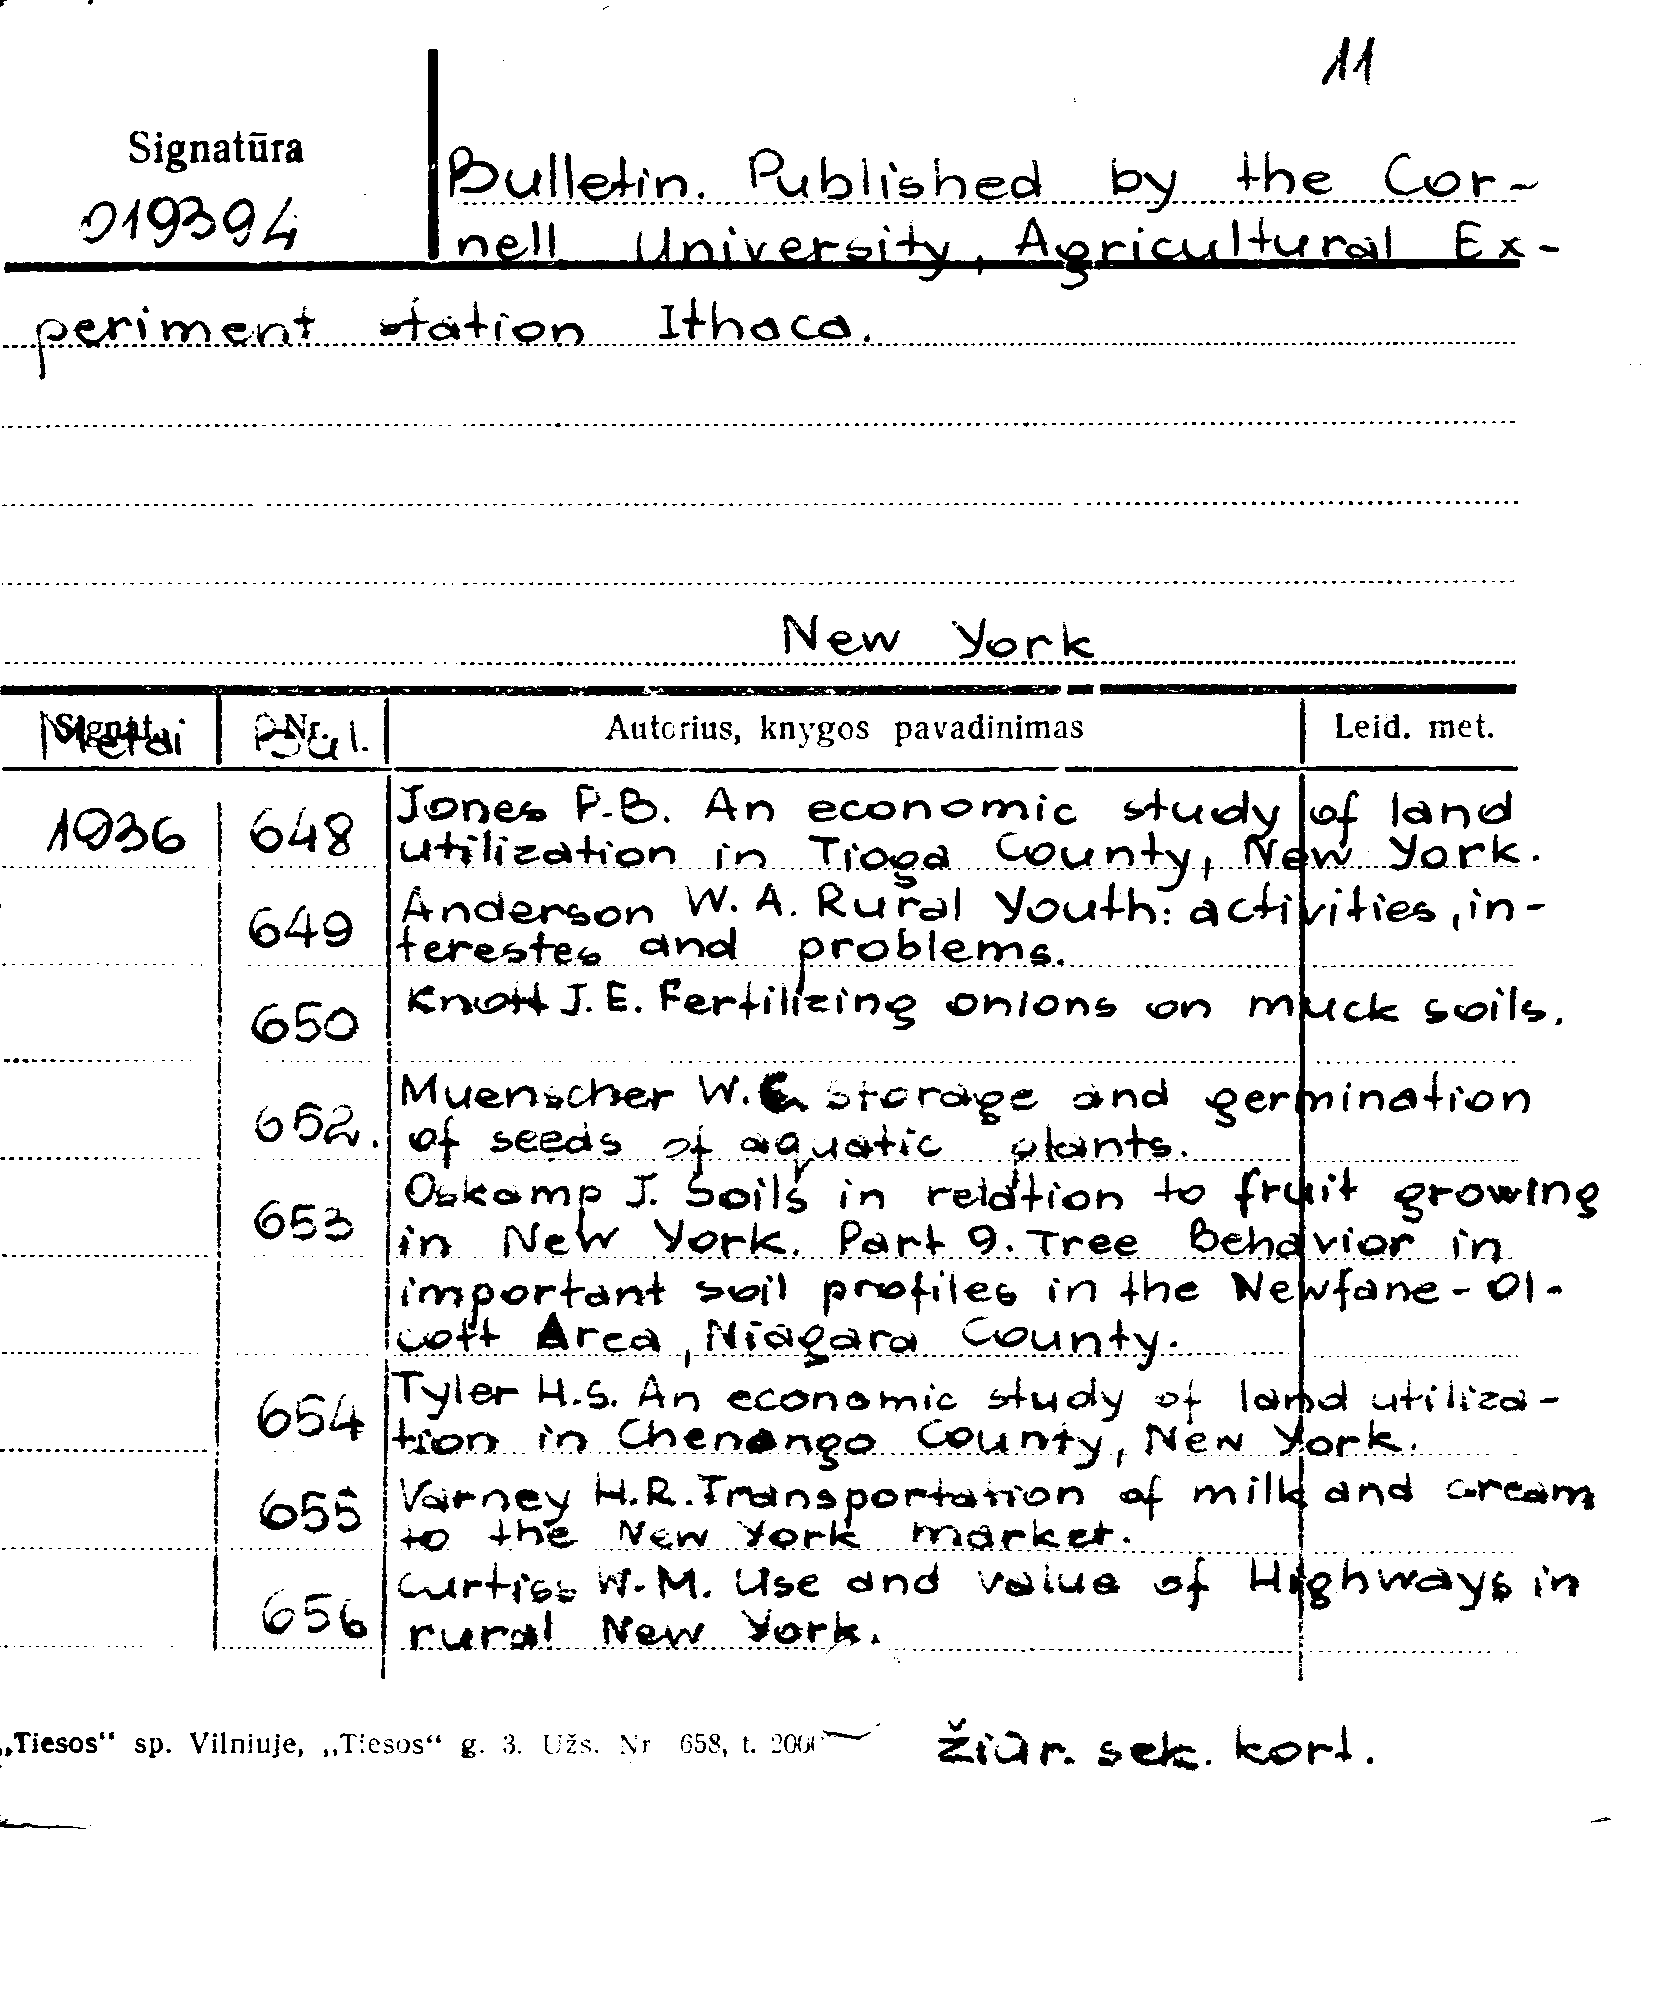 11
Signatūra
019394
Bulletin. Published by the Cor-
nell University, Agricultural Ex-
periment station Ithaca.
New York
Signat. Metai Nr. Bul. Autorius, knygos pavadinimas Leid. met.
1936 648 Jones P.B. An economic study of land
utilization in Tioga County, New York.
649 Anderson W. A. Rural Youth: activities, in-
terestes and problems.
650 Knott J. E. Fertilizing onions on muck soils.
652. Muenscher W. Storage and germination
of seeds of aquatic plants.
653 Oskamp J. Soils in relation to fruit growing
in New York. Part 9. Tree Behavior in
important soil profiles in the Newfane-Ol-
cott Area, Niagara County.
654 Tyler H.S. An economic study of land utiliza-
tion in Chenango County, New York.
655 Varney H.R. Transportation of milk and cream
to the New York market.
656 Curtiss W.M. Use and value of Highways in
rural New York.
„Tiesos“ sp. Vilniuje, „Tiesos“ g. 3. Užs. Nr 658, t.
žiūr. sek. kort.